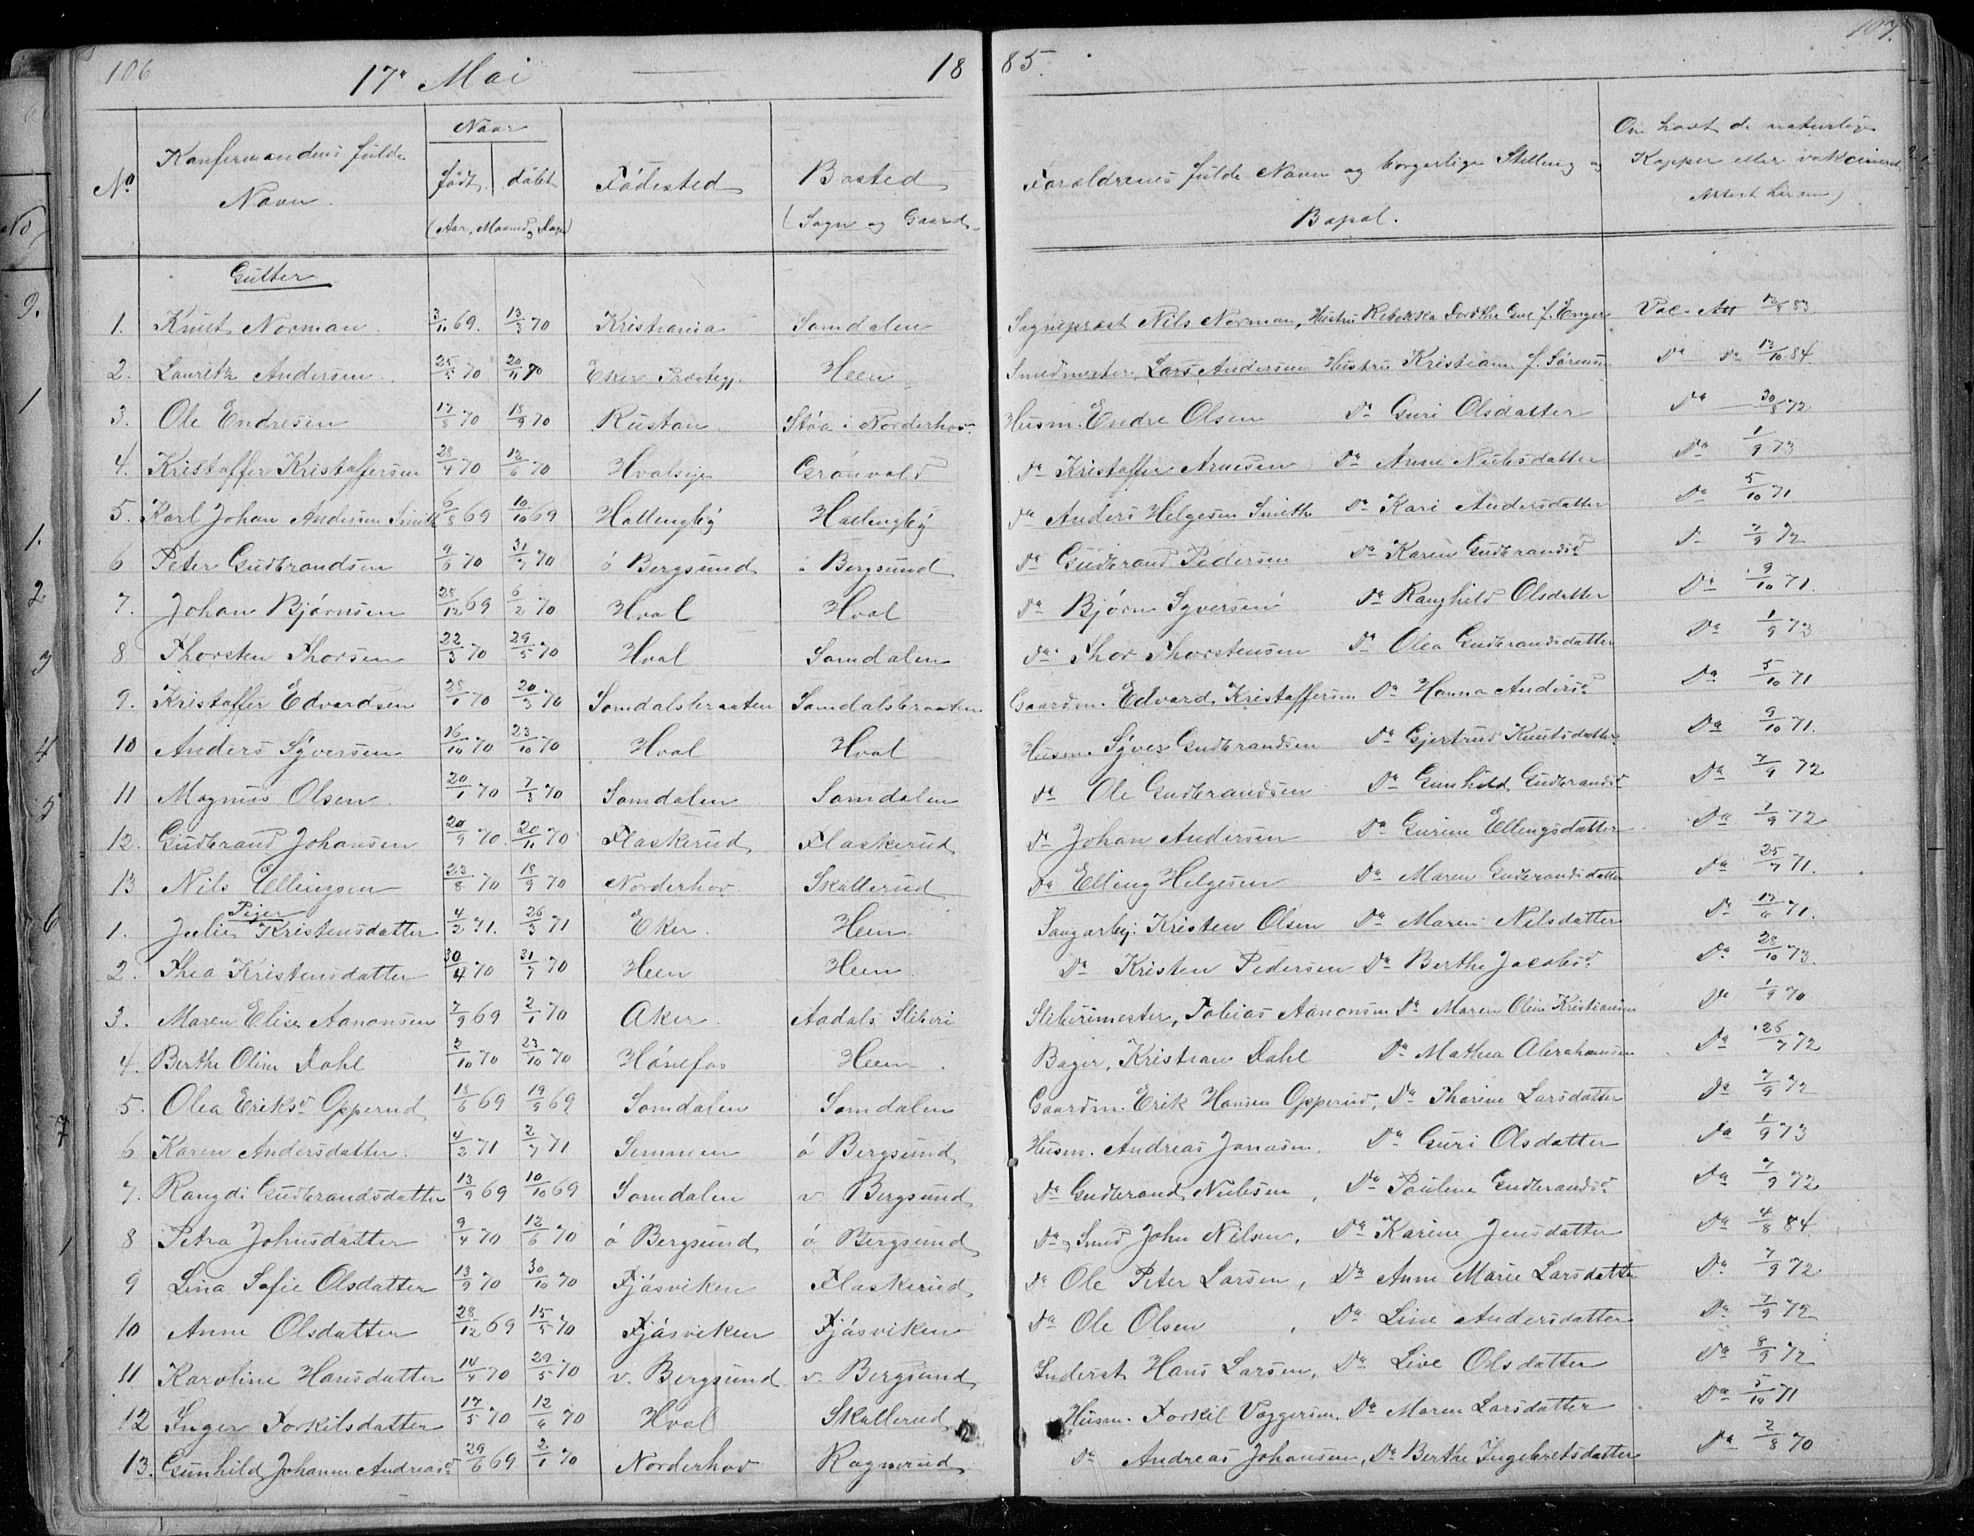 106 17de Mai 18 85. 107.
No Konfirmandens fulde Navn. Naar født, døbt (Aar, Maaned, Dage) Fødested Bosted (Sogn og Gaard) Forældrenes fulde Navn og borgerlige Stilling og Bopæl. Om havt de naturlige Kopper eller vakcineret
Gutter
1. Knut Norman. 3/11 69. 13/3 70 Kristiania Somdalen Sogneprest Nils Norman, Hustru Rebekka Dorothe f. Enger Vac. Att 12/8 83
2. Lauritz Andersen 25/5 70 20/11 70 Eker Prestegj. Heen Smedmester, Lars Andersen Hustru Kristiane f. Sørensen Da Da 12/10 84
3. Ole Endresen 17/5 70 18/9 70 Rustan Støa i Norderhov. Husm. Endre Olsen Da Guri Olsdatter Da 30/8 72
4. Kristoffer Kristoffersen 28/4 70 12/6 70 Hvalseje Grønvold Da Kristoffer Arnesen Da Anne Nielsdatter Da 1/9 73
5. Karl Johan Andersen Smith 6/8 69 10/10 69 Hallengby Hallengby Da Anders Helgesen Smith Da Kari Andersdatter Da 5/10 71
6 Peter Gudbrandsen 9/6 70 31/7 70 ø Bergsund ø Bergsund Da Gudbrand Pedersen Da Karen Gudbrandsd Da 7/9 72
7. Johan Bjørnsen 28/12 69 6/2 70 Hval Hval Da Bjørn Syversen Da Ranghild Olsdatter Da 9/10 71.
8 Thorsten Thorsen 22/3 70 29/5 70 Hval Somdalen Da Thor Thorstensen Da Olea Gudbrandsdatter Da 1/9 73
9. Kristoffer Edvardsen 28/1 70 20/3 70 Somdalsbraaten Somdalsbraaten Gaardm. Edvard Kristoffersen Da Hanna Andersd Da 5/10 71
10 Anders Syversen 16/10 70 23/10 70 Hval Hval Husm. Syver Gudbrandsen Da Gjertrud Knutsdatter Da 9/10 71.
11 Magnus Olsen 20/1 70 7/3 70 Somdalen Somdalen Da Ole Gudbrandsen Da Gunhild Gudbrandsd Da 7/9 72
12. Gudbrand Johansen 20/9 70. 20/11 70 Flaskerud Flaskerud Da Johan Andersen Da Gurine Ellingsdatter Da 1/9 72
13 Nils Ellingsen 23/8 70 18/9 70 Norderhov Skallerud Da Elling Helgesen Da Maren Gudbrandsdatter Da 25/7 71.
Piger
1. Julie Kristensdatter 4/2 71. 26/3 71 Eker Heen Saugarbej. Kristen Olsen Da Maren Nilsdatter Da 17/6 71.
2. Thea Kristensdatter 30/4 70 31/7 70 Heen Heen Da Kristen Pedersen Da Berthe Jacobsd Da 28/10 73.
3. Maren Elise Aanonsen 7/9 69 2/1 70 Aker Aadals Sliberi Sliberimester, Tobias Aanonsen Da Maren Oline Kristiansen Da 1/9 70
4. Berthe Oline Dahl 2/10 70 23/10 70 Hønefos Heen Bager, Kristian Dahl Da Mathea Abrahamsen Da 26/7 72
5. Olea Eriksd Opperud 18/6 69 19/9 69 Somdalen Somdalen Gaardm. Erik Hansen Opperud, Da Tharine Larsdatter Da 7/9 72
6 Karen Andersdatter 4/2 71 2/7 71 Semmen ø Bergsund Husm. Andreas Jonasen, Da Guri Olsdatter Da 1/9 73
7. Rangdi Gudbrandsdatter 13/9 69 10/10 69 Somdalen v. Bergsund Da Gudbrand Nielsen, Da Pauline Gudbrandsd Da 7/9 72
8 Petra Johnsdatter 9/4 70 12/6 70 ø Bergsund ø Bergsund Da, Smed John Nilsen, Da Karine Jensdatter Da 4/8 84
9 Lina Sofie Olsdatter 13/9 70 30/10 70 Fjøsviken Flaskerud Da Ole Peter Larsen, Da Anne Marie Larsdatter Da 7/9 72
10 Anne Olsdatter 28/12 69 15/5 70 Fjøsviken Fjøsviken Da Ole Olsen, Da Line Andersdatter Da 7/9 72
11 Karoline Hansdatter 14/4 70 29/5 70 v. Bergsund v. Bergsund Inderst Hans Larsen, Da Live Olsdatter Da 8/9 72
12 Inger Torkilsdatter 17/5 70 12/6 70 Hval Skallerud Husm. Torkil Vaggersen, Da Maren Larsdatter Da 5/10 71
13. Gunhild Johanne Andreasd 29/6 69 2/1 70 Norderhov Ragnerud Da Andreas Johansen, Da Berthe Ingebretsdatter Da 2/8 70